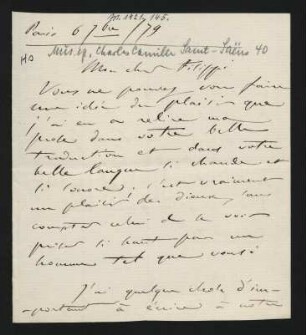 Gr. 1921, 145.
Paris 6 7bre /79
Mus. ep. Charles Camille Saint-Saëns 40
40
Mon cher Filippi
Vous ne pouvez vous faire
une idée du plaisir que
j'ai eu à relire ma
prose dans votre belle
traduction et dans votre
belle langue si chaude et
si sonore; c'est vraiment
un plaisir des dieux, sans
compter celui de la voir
priser si haut par un
homme tel que vous!
J'ai quelque chose d'im-
portant à écrire à notre